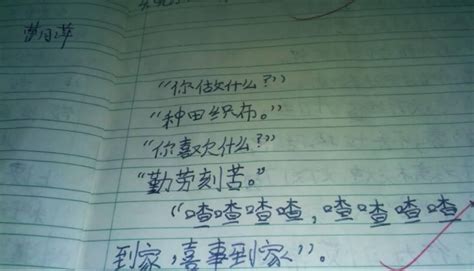 “你做什么？”
“种田织布。”
“你喜欢什么？”
“勤劳刻苦。”
“喳喳喳喳，喳喳喳喳
到家，喜事到家”。